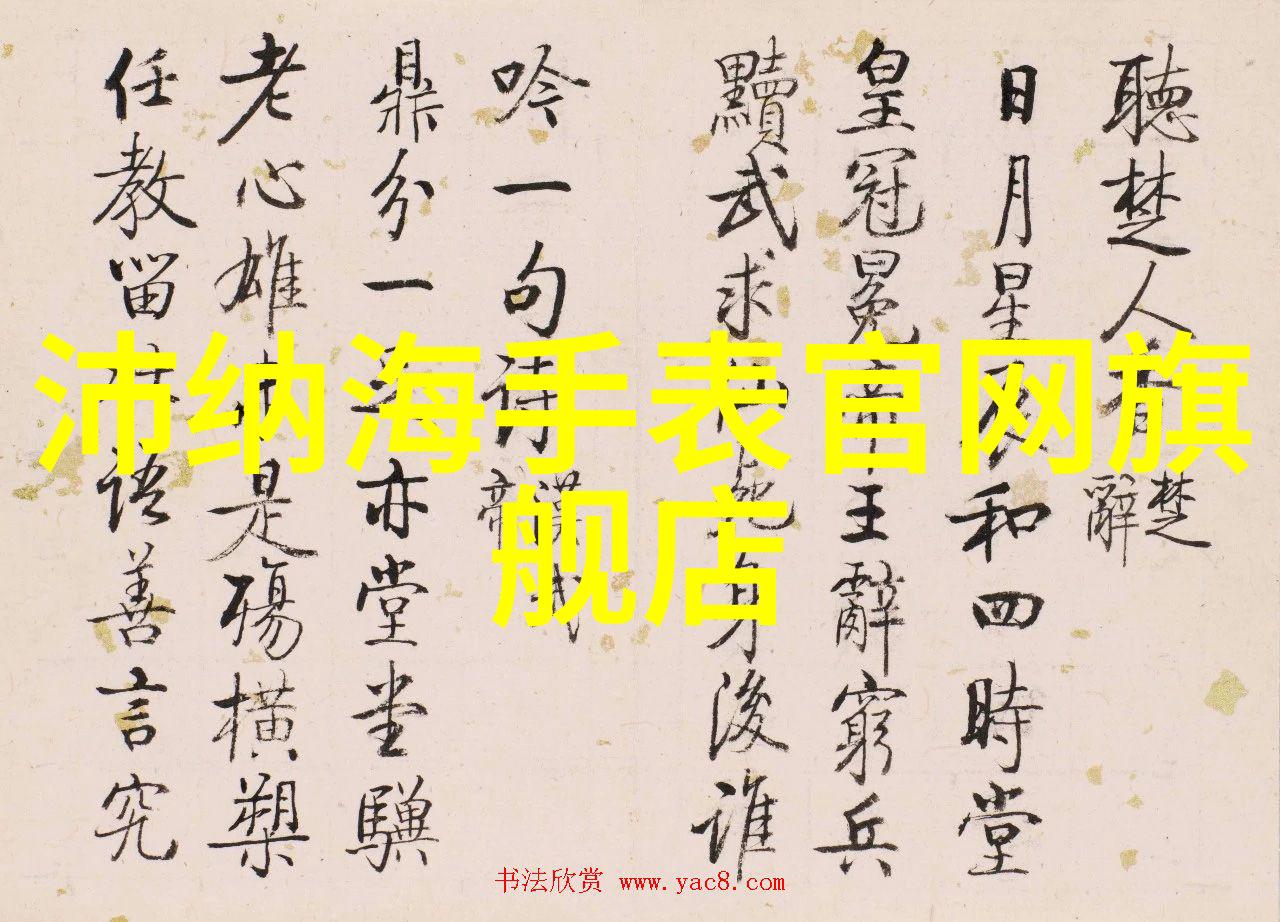 沛纳海手表官网旗
舰店
聽楚人有楚辭
日月星辰和四時堂
皇冠冕帝王辭窮兵
黷武求身後誰
吟一句詩漢武帝
鼎分一亦堂堂驥
老心雄是殤橫槊
任教留語善言究
书法欣赏 www.yac8.com